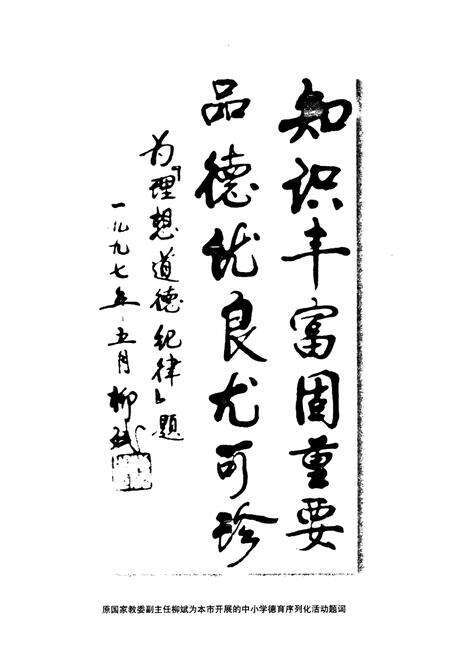 知识丰富固重要
品德优良尤可珍
为『理想道德纪律』题
一九九七年五月 柳斌
原国家教委副主任柳斌为本市开展的中小学德育序列化活动题词